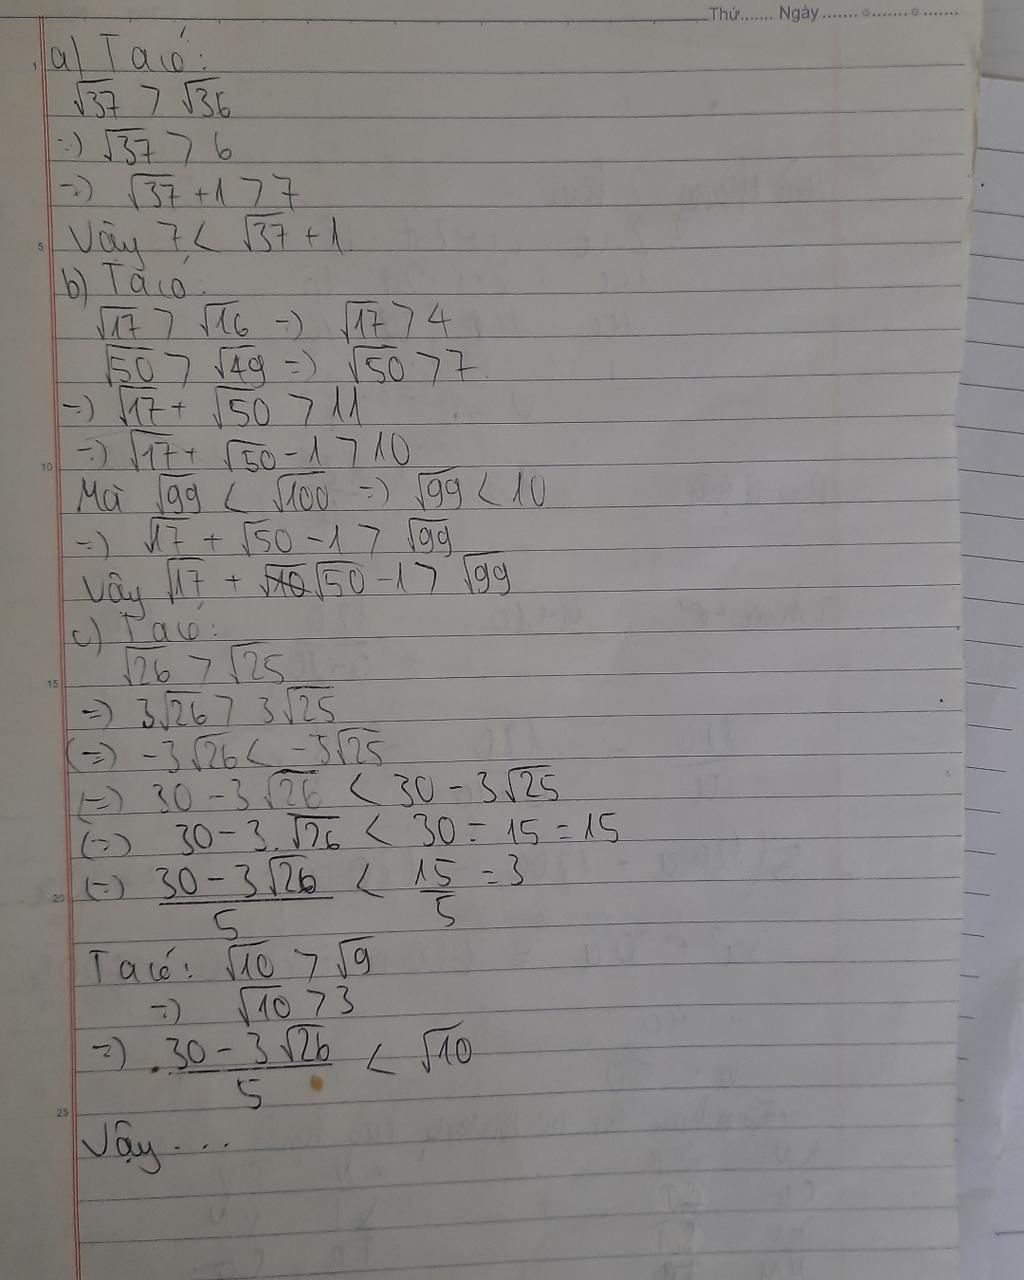 Thứ....... Ngày ....... ....... .......
a) Ta có:
√37 > √36
=) √37 > 6
=) √37 + 1 > 7
Vậy 7 < √37 + 1
b) Ta có:
√17 > √16 =) √17 > 4
√50 > √49 =) √50 > 7
=) √17 + √50 > 11
=) √17 + √50 - 1 > 10
Mà √99 < √100 =) √99 < 10
=) √17 + √50 - 1 > √99
Vậy √17 + √50 - 1 > √99
c) Ta có:
√26 > √25
=) 3√26 > 3√25
(=) -3√26 < -3√25
(=) 30 - 3√26 < 30 - 3√25
(=) 30 - 3.√26 < 30 - 15 = 15
(=) 30 - 3√26 / 5 < 15 / 5 = 3
Ta có: √10 > √9
=) √10 > 3
=) 30 - 3√26 / 5 < √10
Vậy ...